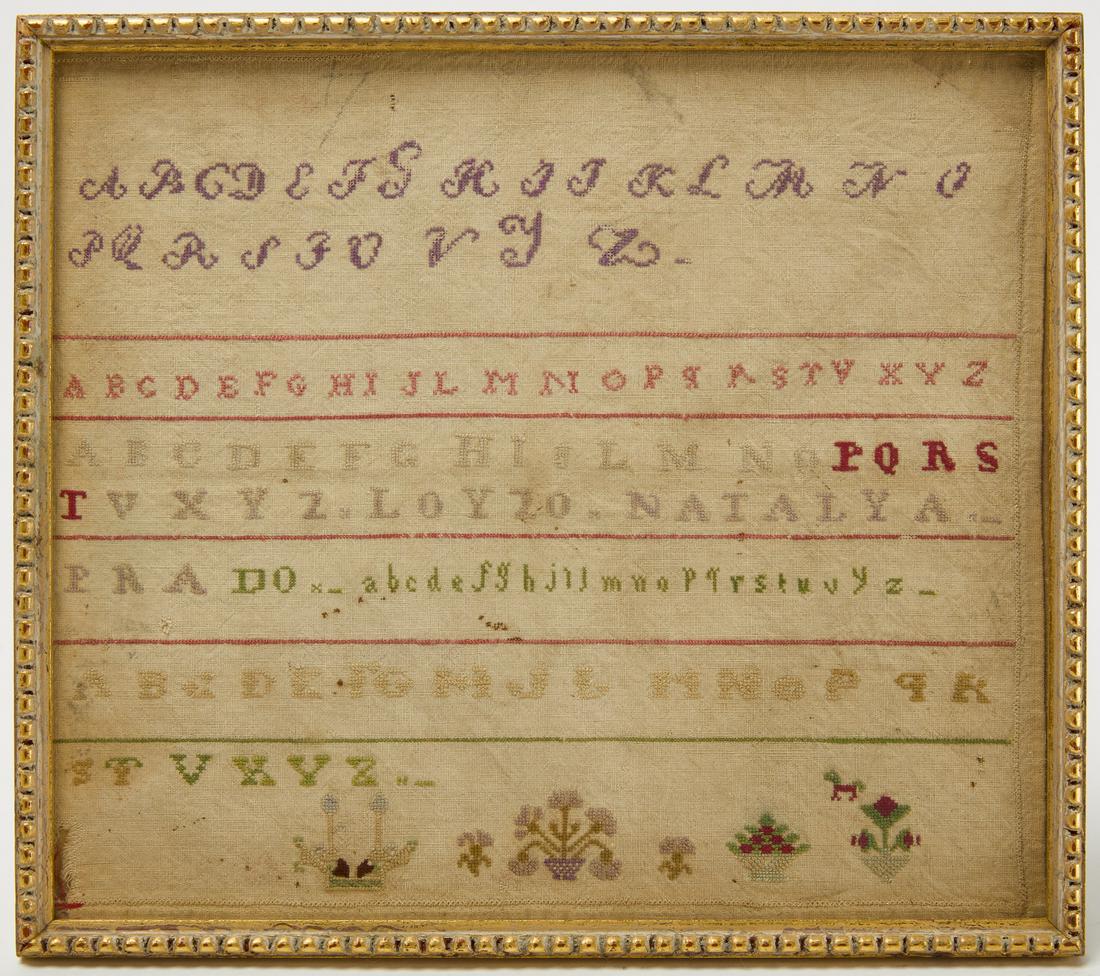 A B C D E F G H I J K L M N O
P Q R S T U V Y Z _
A B C D E F G H I J L M N O P q R S T V X Y Z
A B C D E F G H I J L M N O P Q R S
T V X Y Z . L O Y Z O . N A T A L Y A . _
P R A D O x _ a b c d e f g h j i l m n o p q r s t u v y z _
A B C D E F G H J L M N O P q R
S T V X Y Z _